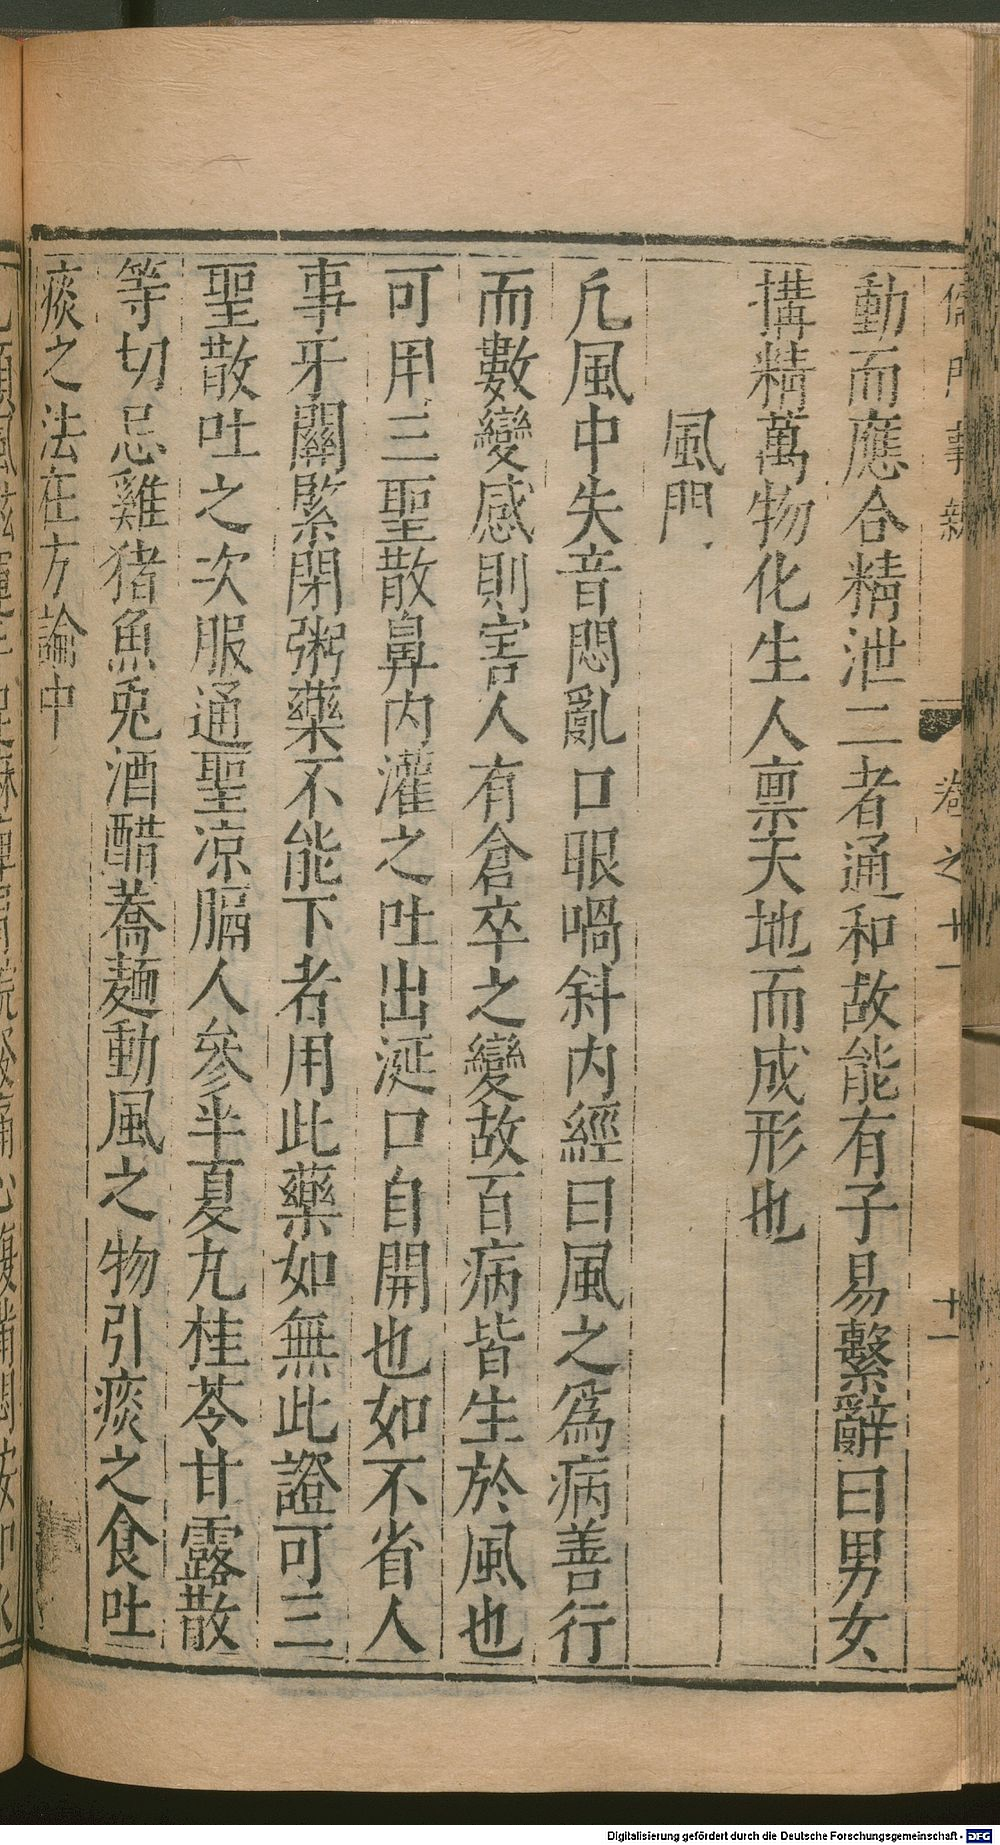 儒門事親 卷之十一 十一
動而應合精泄二者通和故能有子易繫辭曰男女
搆精萬物化生人禀天地而成形也
風門
凢風中失音悶亂口眼喎斜内經曰風之爲病善行
而數變感則害人有倉卒之變故百病皆生於風也
可用三聖散鼻内灌之吐出涎口自開也如不省人
事牙關緊閉粥藥不能下者用此藥如無此證可三
聖散吐之次服通聖凉膈人參半夏丸桂苓甘露散
等切忌雞猪魚兎酒醋蕎麺動風之物引痰之食吐
痰之法在方論中
Digitalisierung gefördert durch die Deutsche Forschungsgemeinschaft - DFG